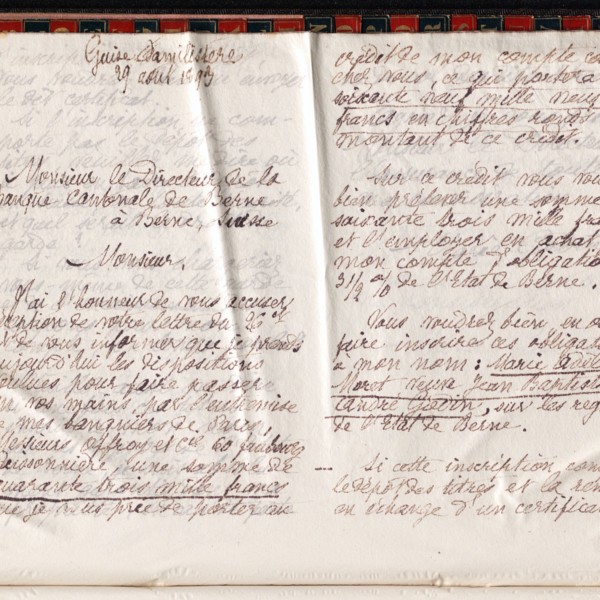 Guise Familistère
29 août 1893
Monsieur le Directeur de la
banque Cantonale de Berne
à Berne, Suisse
Monsieur,
J'ai l'honneur de vous accuser
réception de votre lettre du 26 ct
de vous informer que je prends
aujourd'hui les dispositions
pour faire passer
en vos mains, par l'entremise
de mes banquiers de Paris,
Messieurs Offroy et Cie 60 faubourg
Poissonnière, une somme de
quarante trois mille francs
que je vous prie de porter au
crédit de mon compte
chez vous, ce qui portera
soixante neuf mille neuf
francs en chiffres ronds
montant de ce crédit.
Sur ce crédit vous
bien prélever une somme
soixante trois mille fra
et l'employer en achat
mon compte d'obligatio
3 1/2 % de l'Etat de Berne.
Vous voudrez bien en o
faire inscrire ces obliga
à mon nom : Marie Adèl
Moret veuve Jean Baptiste
andre Godin, sur les reg
de l'Etat de Berne.
Si cette inscription com
le dépôt des titres et la rem
en échange d'un certifica